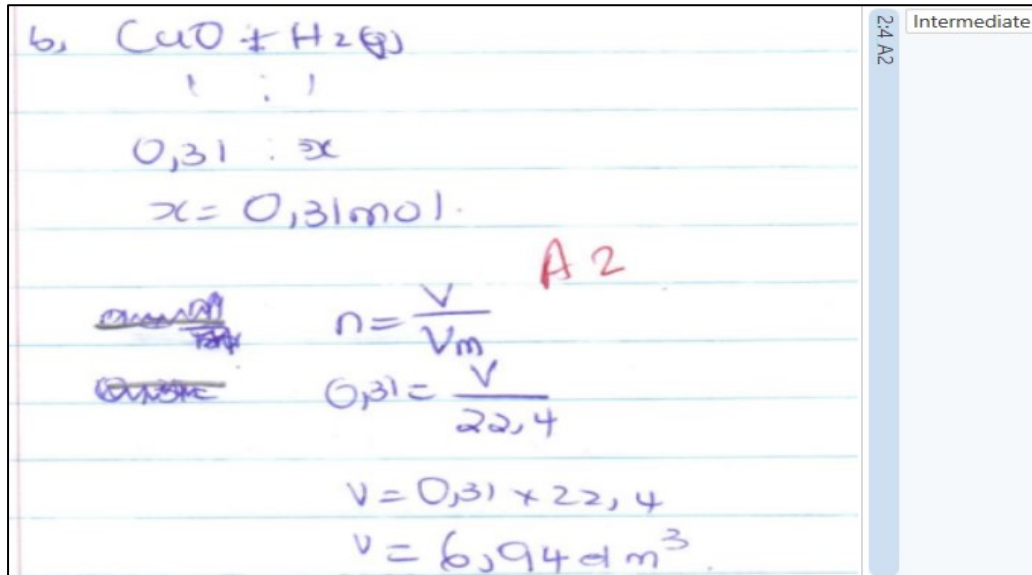 b, CuO + H2(g)
1 : 1
0,31 : x
x = 0,31mol.
A 2
n = V
Vm
0,31 = V
22,4
V = 0,31 × 22,4
V = 6,94 dm³.
2:4 A2
Intermediate